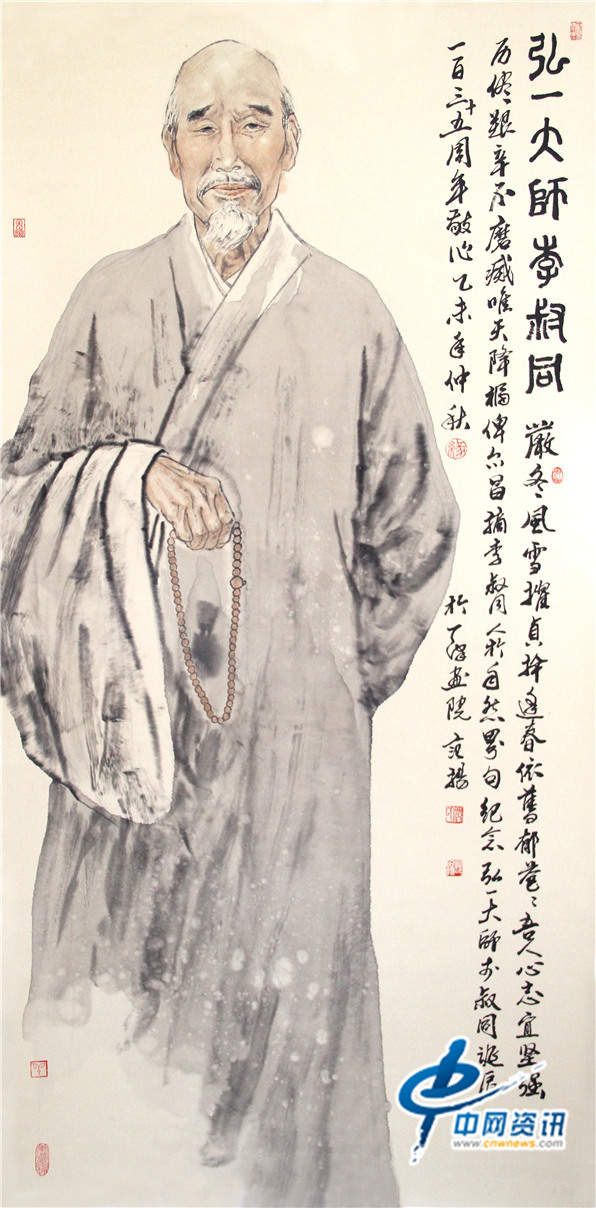 弘一大師李叔同 嚴冬風雪擢貞幹逢春依舊郁蒼〻吾人心志宜坚强
历儘艱辛不磨滅唯天降福俾尔昌摘李叔同人於自然界句纪念弘一大师李叔同诞辰
一百三十五周年敬作乙未年仲秋 於 画院 范揚
中网资讯
www.cnwnews.com